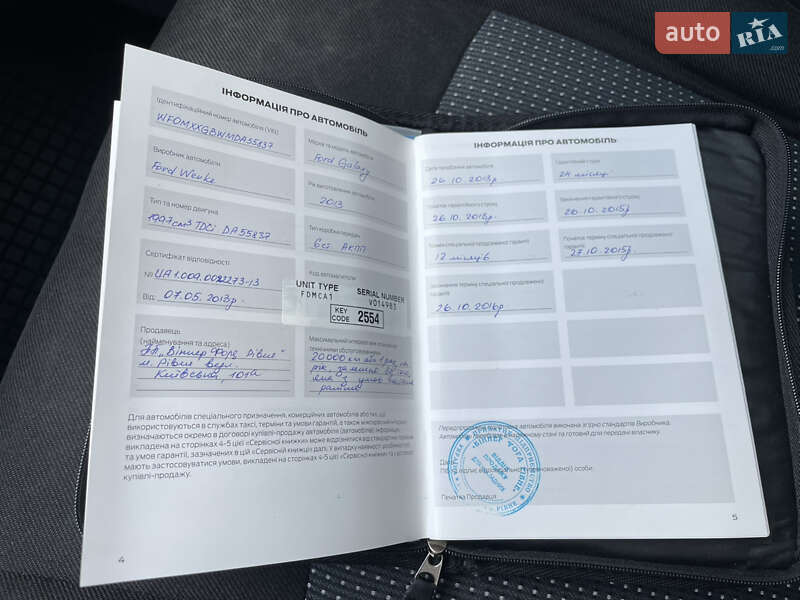 auto RIA.com
ІНФОРМАЦІЯ ПРО АВТОМОБІЛЬ
Ідентифікаційний номер автомобіля (VIN)
WFOMXXGBWMDA55837
Марка та модель автомобіля
Ford Galaxy
Виробник автомобіля
Ford Werke
Рік виготовлення автомобіля
2013
Тип та номер двигуна
1997cm³ TDCi DA55837
Тип коробки передач
6ст АКПП
Сертифікат відповідності
№ UA1.009.0022273-13
Від: 07.05.2013р.
Код автомагнітоли
UNIT TYPE SERIAL NUMBER
FDMCA1 V014983
KEY CODE 2554
Продавець
(найменування та адреса)
"Віннер Форд Рівне"
м. Рівне вул.
Київська, 101а
Максимальний інтервал між плановими
технічними обслуговуваннями
20000 км або 1 раз на
рік,
Для автомобілів спеціального призначення, комерційних автомобілів або тих, що
використовуються в службах таксі, терміни та умови гарантії, а також міжсервісний інтервал
визначаються окремо в договорі купівлі-продажу автомобіля (автомобілів). Інформація,
викладена на сторінках 4-5 цієї «Сервісної книжки» може відрізнятися від стандартних термінів
та умов гарантії, зазначених в цій «Сервісній книжці» далі. У випадку наявності розбіжностей
мають застосовуватися умови, викладені на сторінках 4-5 цієї «Сервісної книжки» та в договорі
купівлі-продажу.
4
ІНФОРМАЦІЯ ПРО АВТОМОБІЛЬ
Дата придбання автомобіля
26.10.2013р.
Гарантійний строк
24 місяці
Початок гарантійного строку
26.10.2013р.
Закінчення гарантійного строку
26.10.2015р.
Термін спеціальної продовженої гарантії
12 місяців
Початок терміну спеціальної продовженої
гарантії
27.10.2015р.
Закінчення терміну спеціальної продовженої
гарантії
26.10.2016р.
автомобіля виконана згідно стандартів Виробника.
стані та готовий для передачі власнику.
особи.
Печатка Продавця
ВІДДІЛ
ПРОДАЖУ
РІВНЕ
5